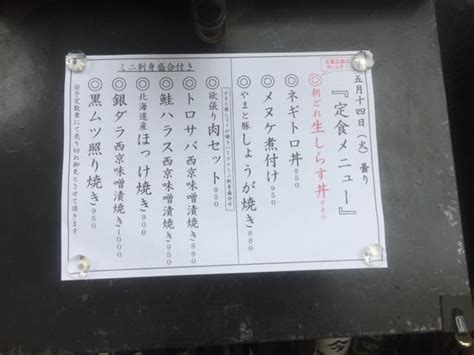 五月十四日(火)曇り
『定食メニュー』
◎朝どれ生しらす丼850
◎ネギトロ丼850
◎メヌケ煮付け950
◎やまと豚しょうが焼き880
ミニ刺身盛合付き
◎欲張り肉セット950
◎トロサバ西京味噌漬焼き880
◎鮭ハラス西京味噌漬焼き950
◎北海道産ほっけ焼き900
◎銀ダラ西京味噌漬焼き1000
◎黒ムツ照り焼き950
※予定数量にて売り切れ御免とさせて頂きます